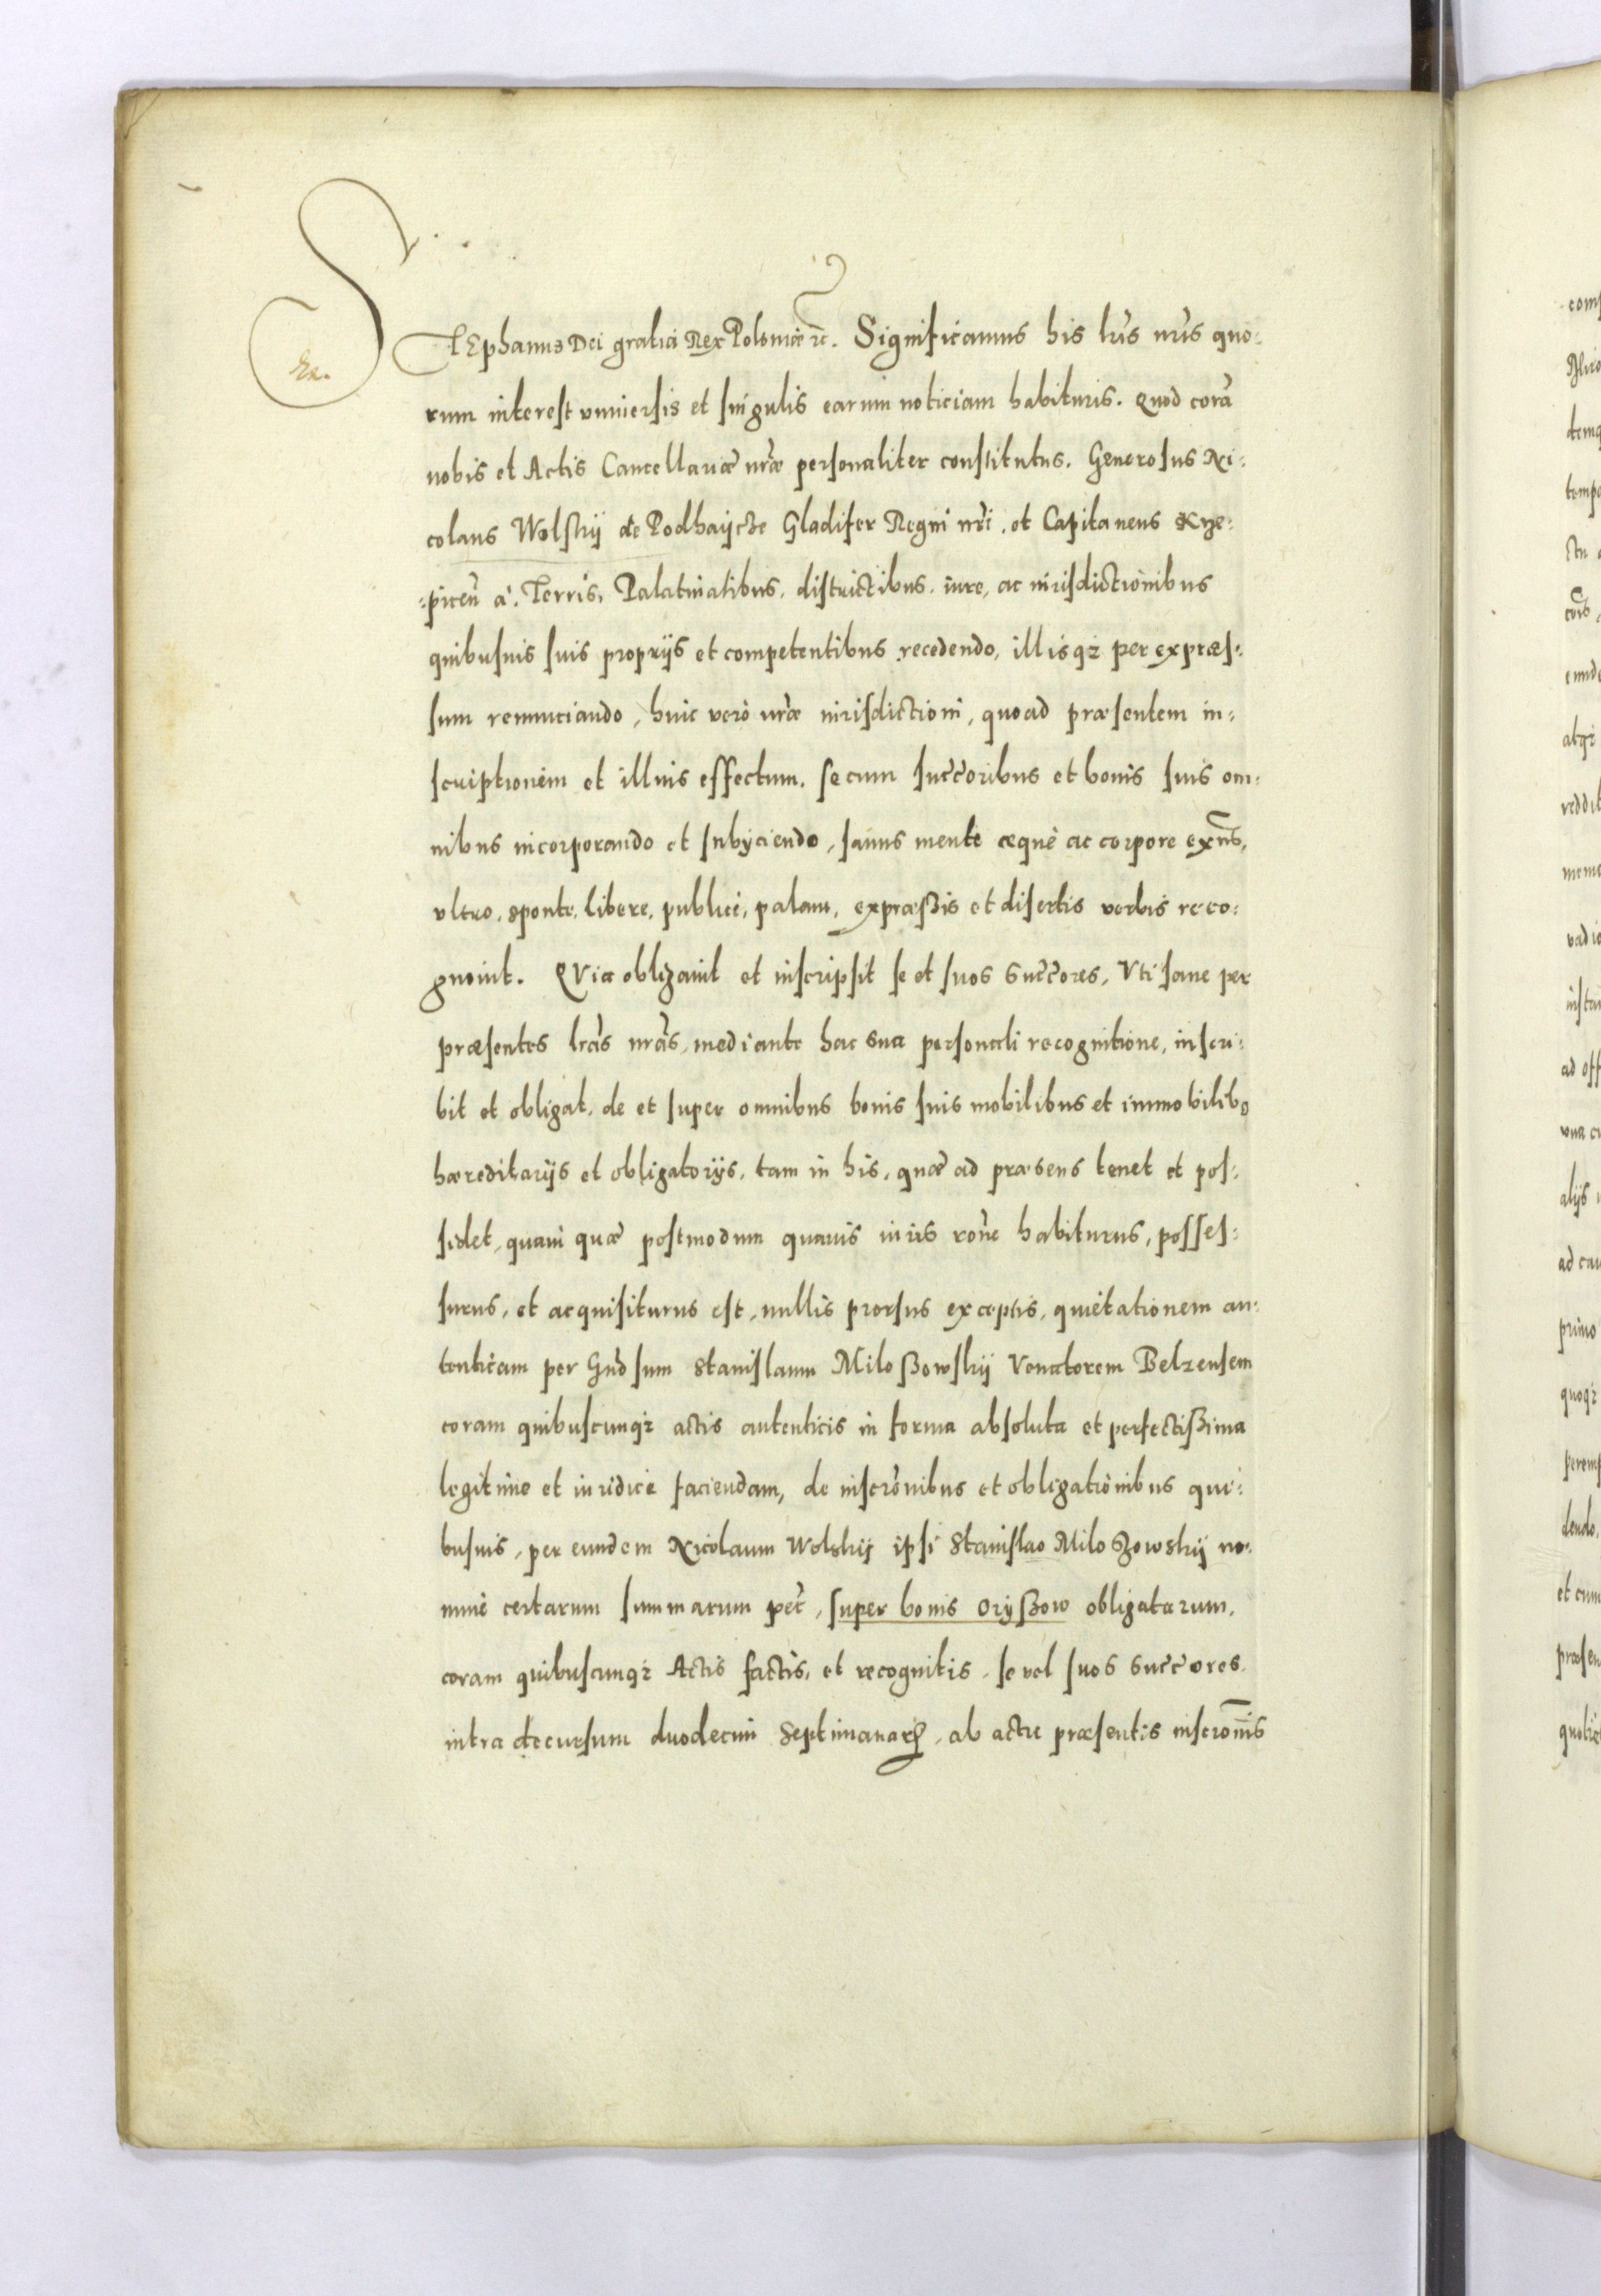 STEphanus Dei gratia Rex Poloniæ ꝛc. Significamus his lr̃is nr̃is quo:
rum interest vniuersis et singulis earum noticiam habituris. Quod corã
nobis et Actis Cancellariæ nr̃æ personaliter constitutus. Generosus Ni:
colaus Wolskij de Podhaijcze Gladifer Regni nr̃i, et Capitaneus Krze:
:picen̄ à Terris, Palatinatibus, districtibus, iure, ac iurisdictionibus
quibusuis suis proprijs et competentibus recedendo, illisqꝫ per expræs:
sum renunciando, huic verò nr̃æ iurisdictioni, quoad præsentem in:
scriptionem et illius effectum, se cum succ̃oribus et bonis suis om:
nibus incorporando et subijciendo, sanus mente æquè ac corpore exñs,
vltro, sponte, libere, publicè, palam, expræßis et disertis verbis reco:
gnouit. QVia obligauit et inscripsit se et suos Succ̃ores, Vti sane per
præsentes lr̃as nr̃as, mediante hac sua personali recognitione, inscri:
bit et obligat, de et super omnibus bonis suis mobilibus et immobilibꝰ
hæreditarijs et obligatorijs, tam in his, quæ ad præsens tenet et pos:
sidet, quam quæ postmodum quauis iuris rõne habiturus, posses:
surus, et acquisiturus est, nullis prorsus exceptis, quietationem au:
tenticam per Gñosum Stanislaum Miloßowskij Venatorem Belzensem
coram quibuscunqꝫ actis autenticis in forma absoluta et perfectißima
legitime et iuridicè faciendam, de inscrõnibus et obligationibus qui:
busuis, per eundem Nicolaum Wolskij ipsi Stanislao Miloßowskij no:
mine certarum summarum pec̃, super bonis Orijßow obligatarum,
coram quibuscunqꝫ Actis factis, et recognitis, se vel suos Succ̃ores
intra decursum duodecim Septimanarꝝ, ab actu præsentis inscrõnis